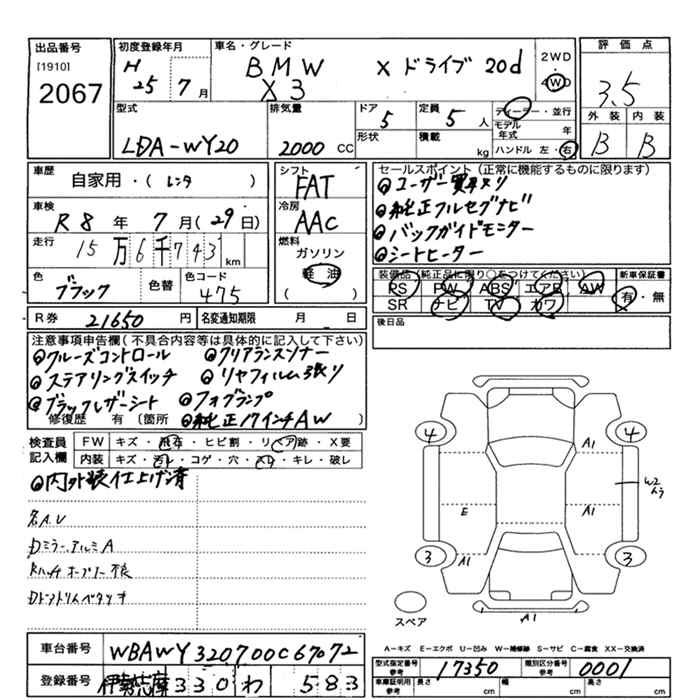 出品番号 初度登録年月 車名・グレード 2WD 評価点
[1910] H BMW X ドライブ 20d 4WD 3.5
2067 25 7月 X3
型式 排気量 ドア 定員 ディーラー・並行 外装 内装
LDA-WY20 2000 CC 5 5人 モデル年式 年 B B
形状 積載 kg ハンドル 左・右
車歴 シフト セールスポイント(正常に機能するものに限ります)
自家用・(レンタ ) FAT ユーザー買取り
車検 冷房 純正フルセグナビ
R8年 7月(29日) AAC バックガイドモニター
走行 燃料 シートヒーター
15万6千743km ガソリン
軽油
色 色替 色コード ( ) 装備品(純正品に限り○をつけてください) 新車保証書
ブラック 475 PS PW ABS エアB AW 有・無
SR ナビ TV カワ
R券 21650円 名変通知期限 月 日 後日品
注意事項申告欄(不具合内容等は具体的に記入して下さい)
クルーズコントロール クリアランスソナー
ステアリングスイッチ リヤフィルム張り
ブラックレザーシート フォグランプ
修復歴 有〔箇所 純正17インチAW 〕
検査員記入欄 FW キズ・飛石・ヒビ割・リペア跡・X要
内装 キズ・汚レ・コゲ・穴・スレ・キレ・破レ
内外装仕上げ済
Dミラー.アルミA
Rハッチオープナー不良
4 4 A1
A1 W2
E A1
3 3 A1
A1
スペア
A-キズ E-エクボ U-凹み W-補修跡 S-サビ C-腐食 XX-交換済
車台番号 WBAWY320700C67072
型式指定番号 参考 17350 類別区分番号 参考 0001
登録番号 330 わ 583
車庫証明用 参考 長さ cm 幅 cm 高さ cm